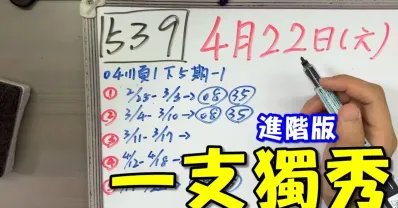 539
4月22日(六)
04川頁1下5期-1
① 2/25-3/3→ 08 35
② 3/4-3/10→ 08 35
③ 3/11-3/17→
④ 4/12-4/18→
進階版
一支獨秀